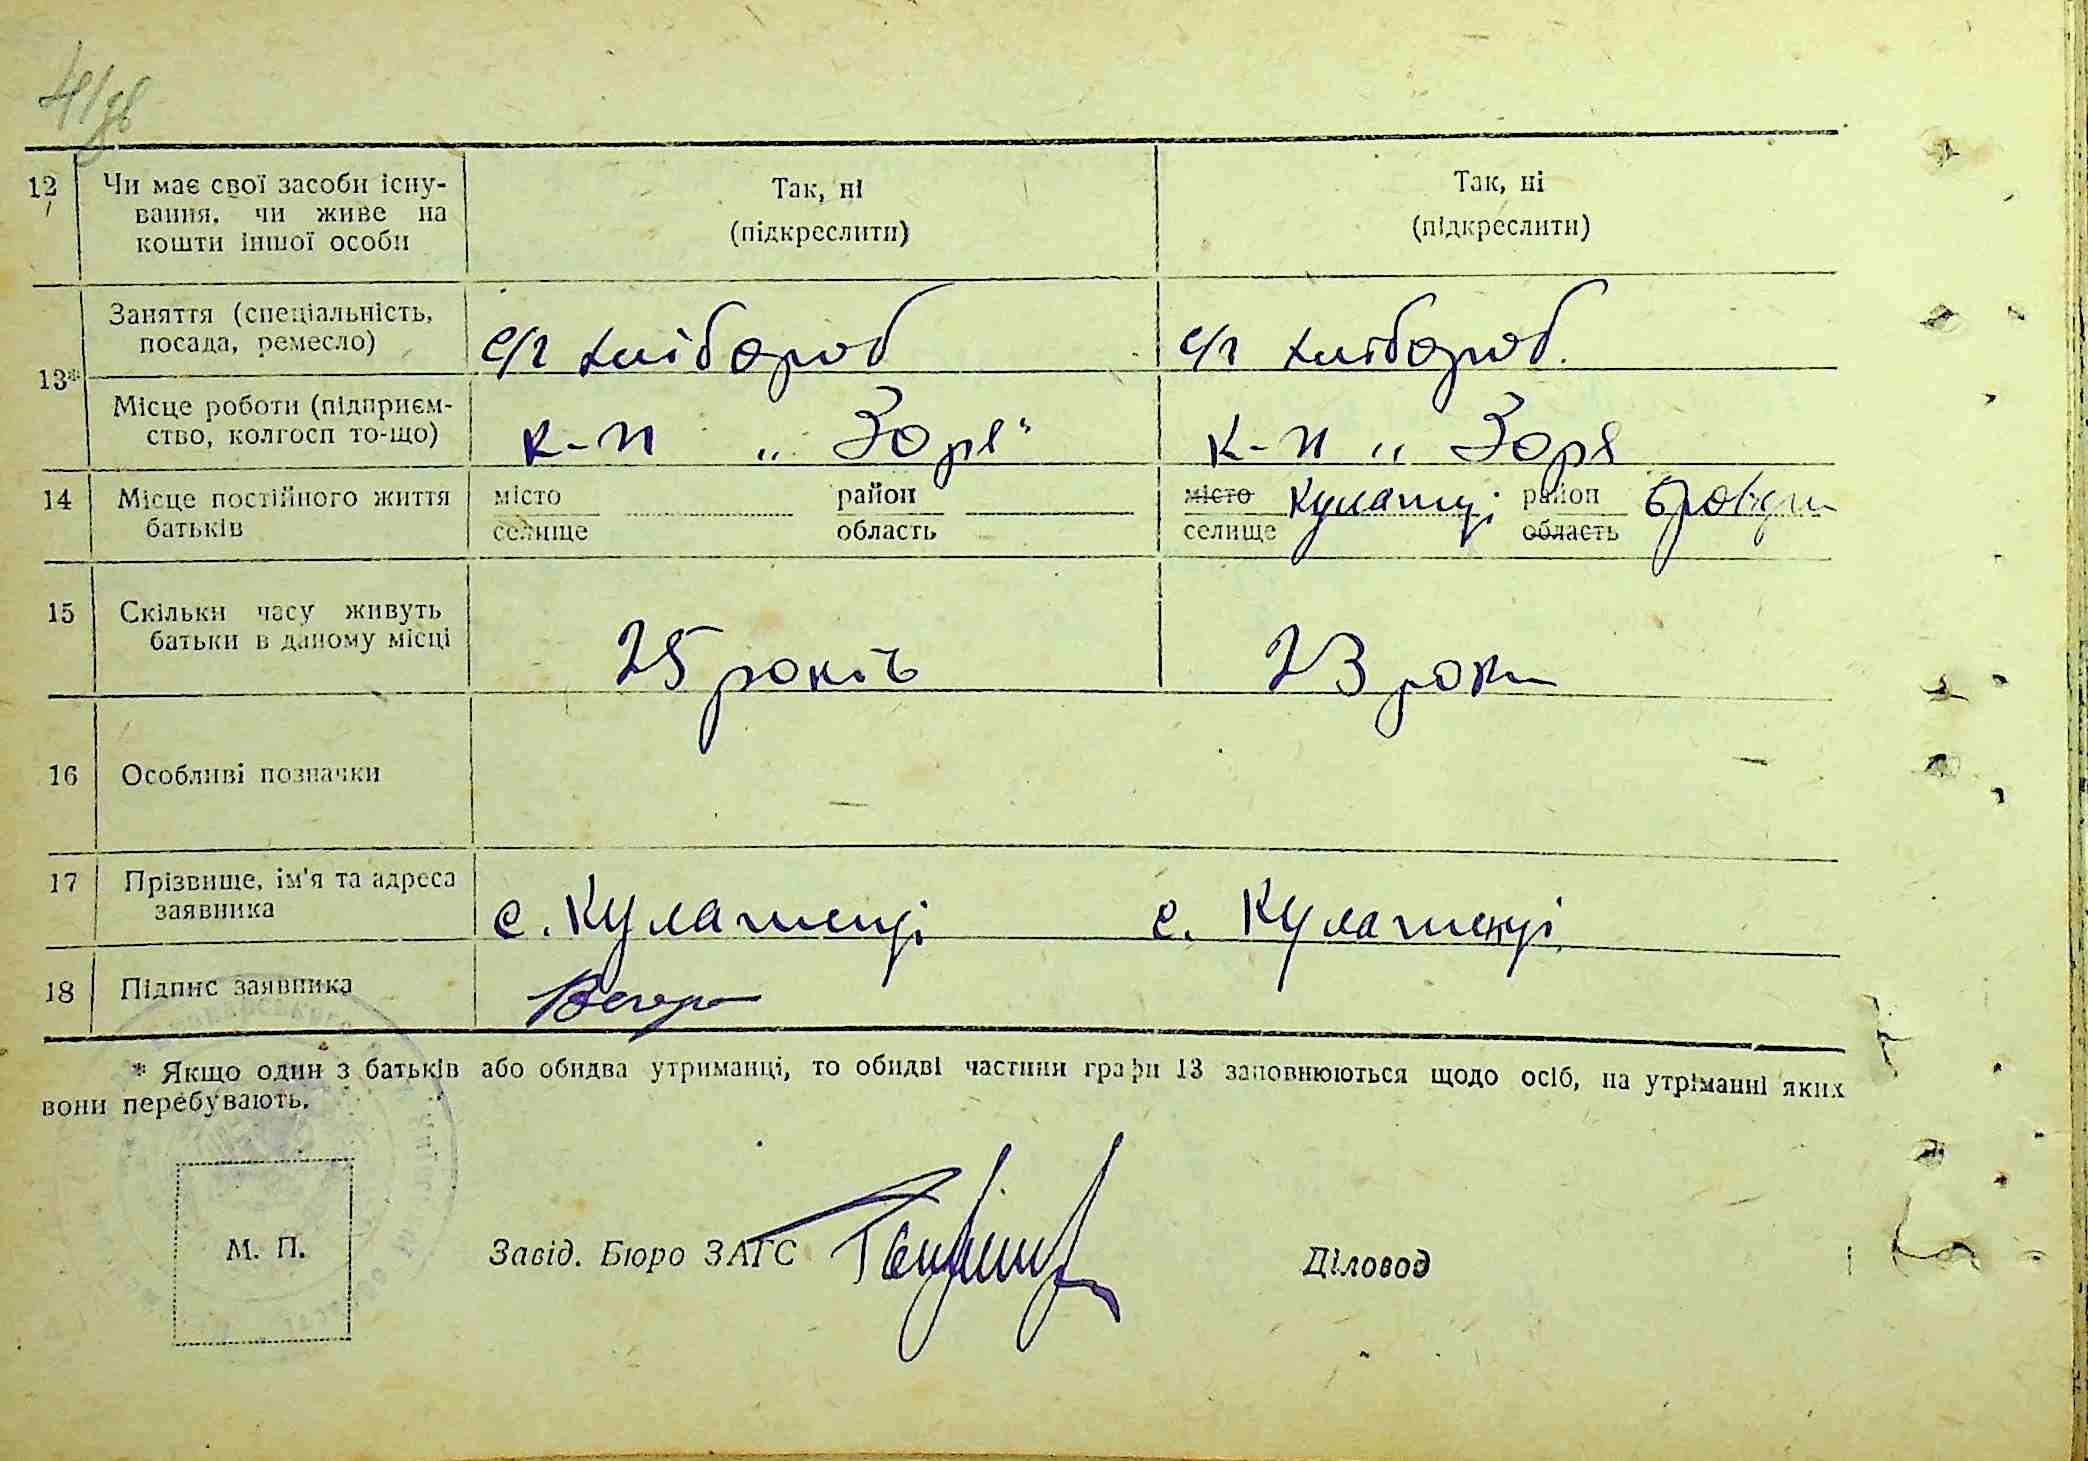 41зв
12 Чи має свої засоби існу- Так, ні Так, ні
вання, чи живе на (підкреслити) (підкреслити)
кошти іншої особи
13* Заняття (спеціальність, с/г хлібороб с/г хлібороб.
посада, ремесло)
Місце роботи (підприєм- к-п „Зоря“ к-п „Зоря
ство, колгосп то-що)
14 Місце постійного життя місто район місто район
батьків селище область селище область
15 Скільки часу живуть 25 років 23 роки
батьки в даному місці
16 Особливі позначки — —
17 Прізвище, ім'я та адреса
заявника
18 Підпис заявника
* Якщо один з батьків або обидва утриманці, то обидві частини графи 13 заповнюються щодо осіб, на утріманні яких
вони перебувають.
М. П. Завід. Бюро ЗАГС Діловод